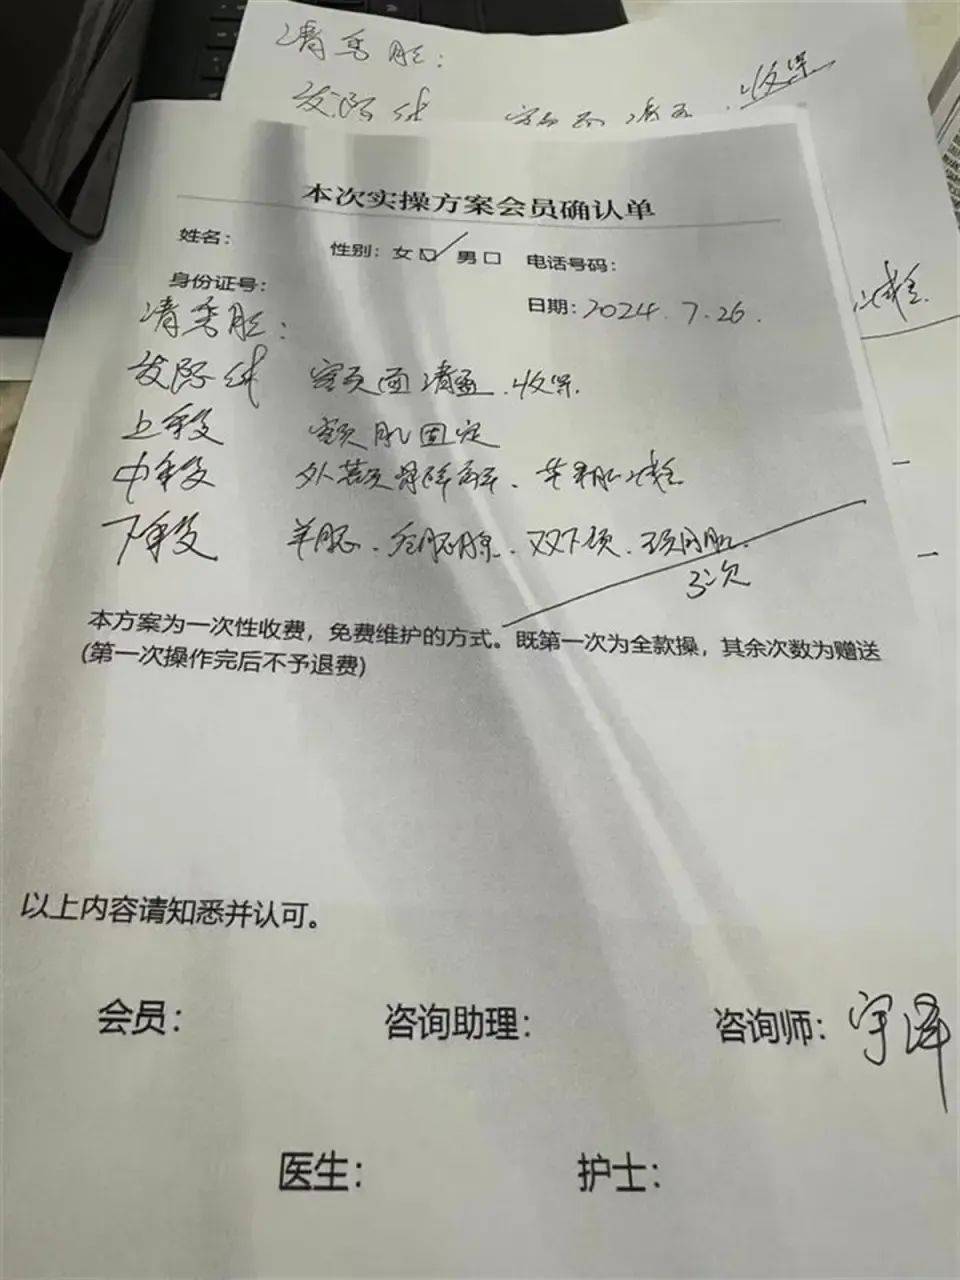 清秀脸：
发际线 额面清 收紧
本次实操方案会员确认单
姓名：
性别：女☑ 男□ 电话号码：
身份证号：
日期：2024.7.26.
清秀脸：
发际线 额页面清 收紧
上手段 额肌固定
中手段 外 骨 解 肌
下手段 羊 腺、双下颌、颈阔肌
3次
本方案为一次性收费，免费维护的方式。既第一次为全款操，其余次数为赠送
(第一次操作完后不予退费)
以上内容请知悉并认可。
会员： 咨询助理： 咨询师：宇泽
医生： 护士：